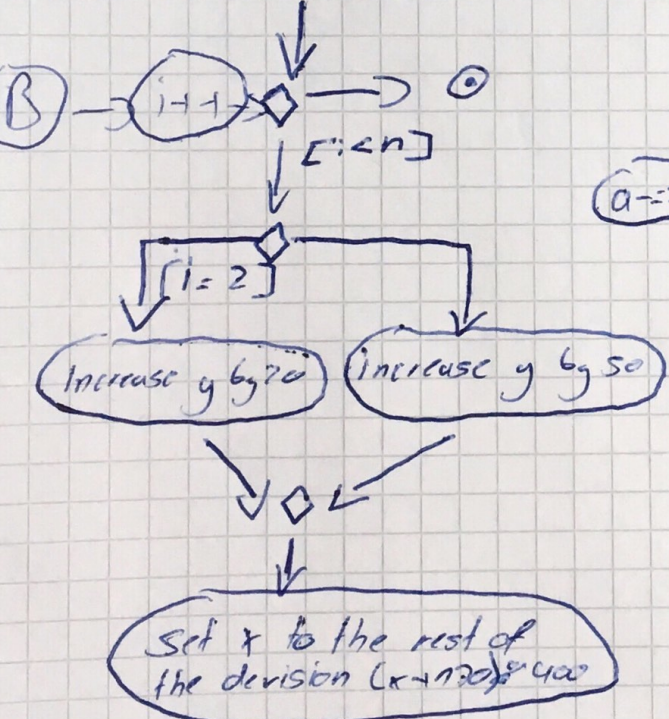 B
i++
[i<n]
a-=
[i=2]
Increase y by 20
increase y by 50
Set x to the rest of
the devision